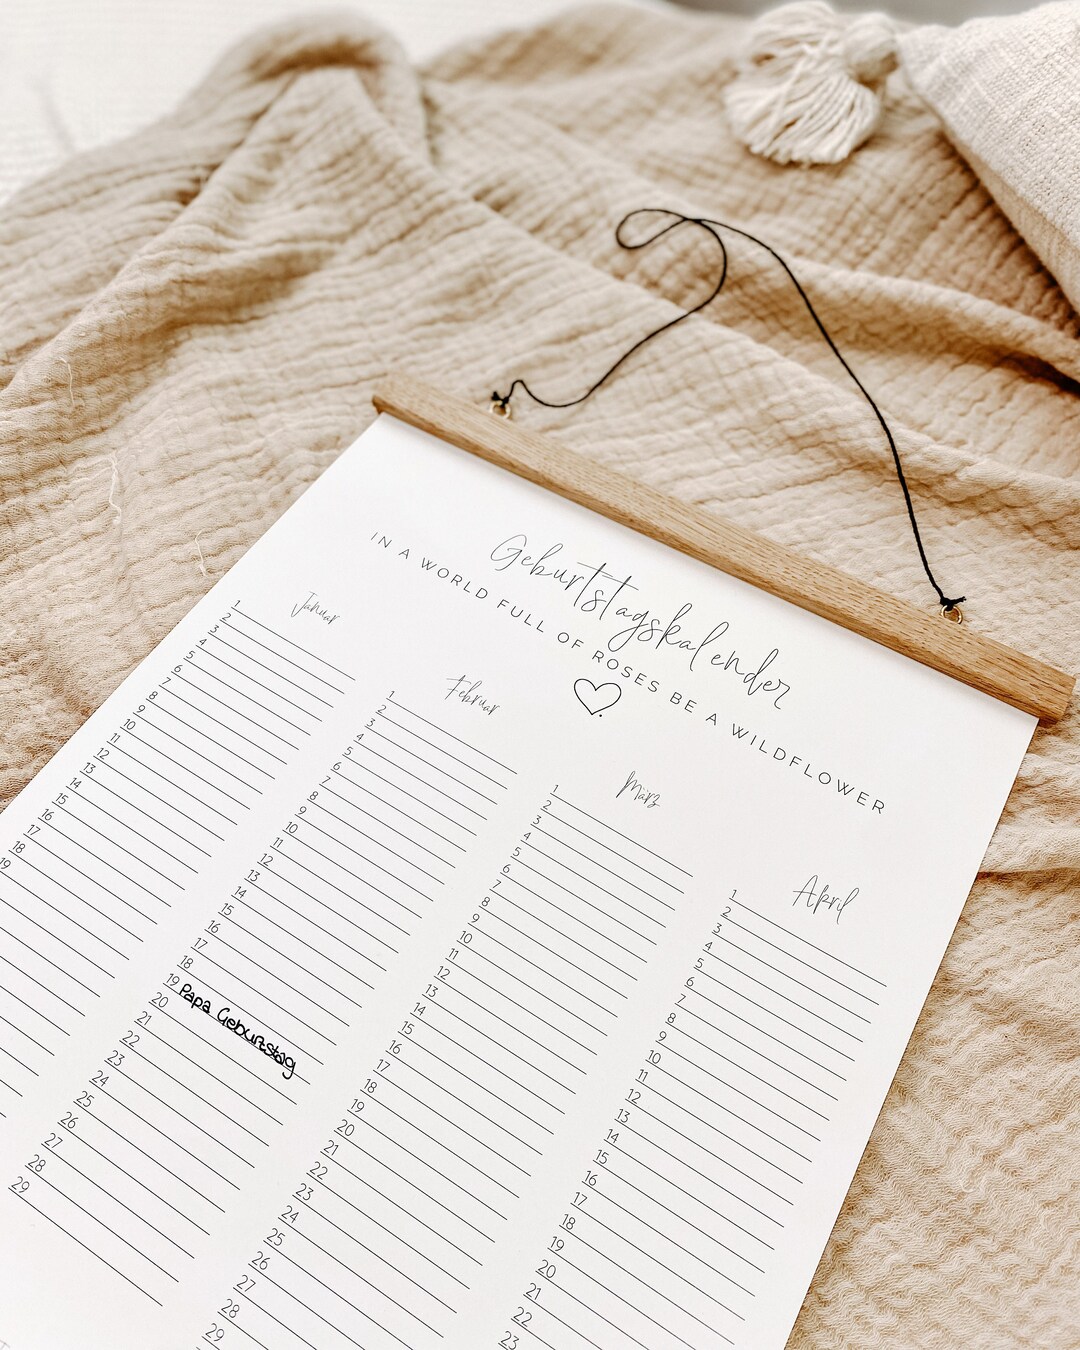 Geburtstagskalender
IN A WORLD FULL OF ROSES BE A WILDFLOWER
Januar
1
2
3
4
5
6
7
8
9
10
11
12
13
14
15
16
17
18
19
Februar
1
2
3
4
5
6
7
8
9
10
11
12
13
14
15
16
17
18
19 Papa Geburtstag
20
21
22
23
24
25
26
27
28
29
März
1
2
3
4
5
6
7
8
9
10
11
12
13
14
15
16
17
18
19
20
21
22
23
24
25
26
27
28
29
April
1
2
3
4
5
6
7
8
9
10
11
12
13
14
15
16
17
18
19
20
21
22
23